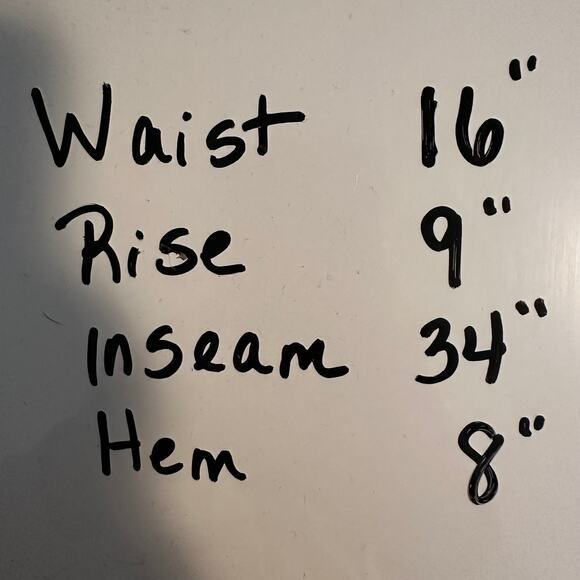 Waist 16"
Rise 9"
Inseam 34"
Hem 8"